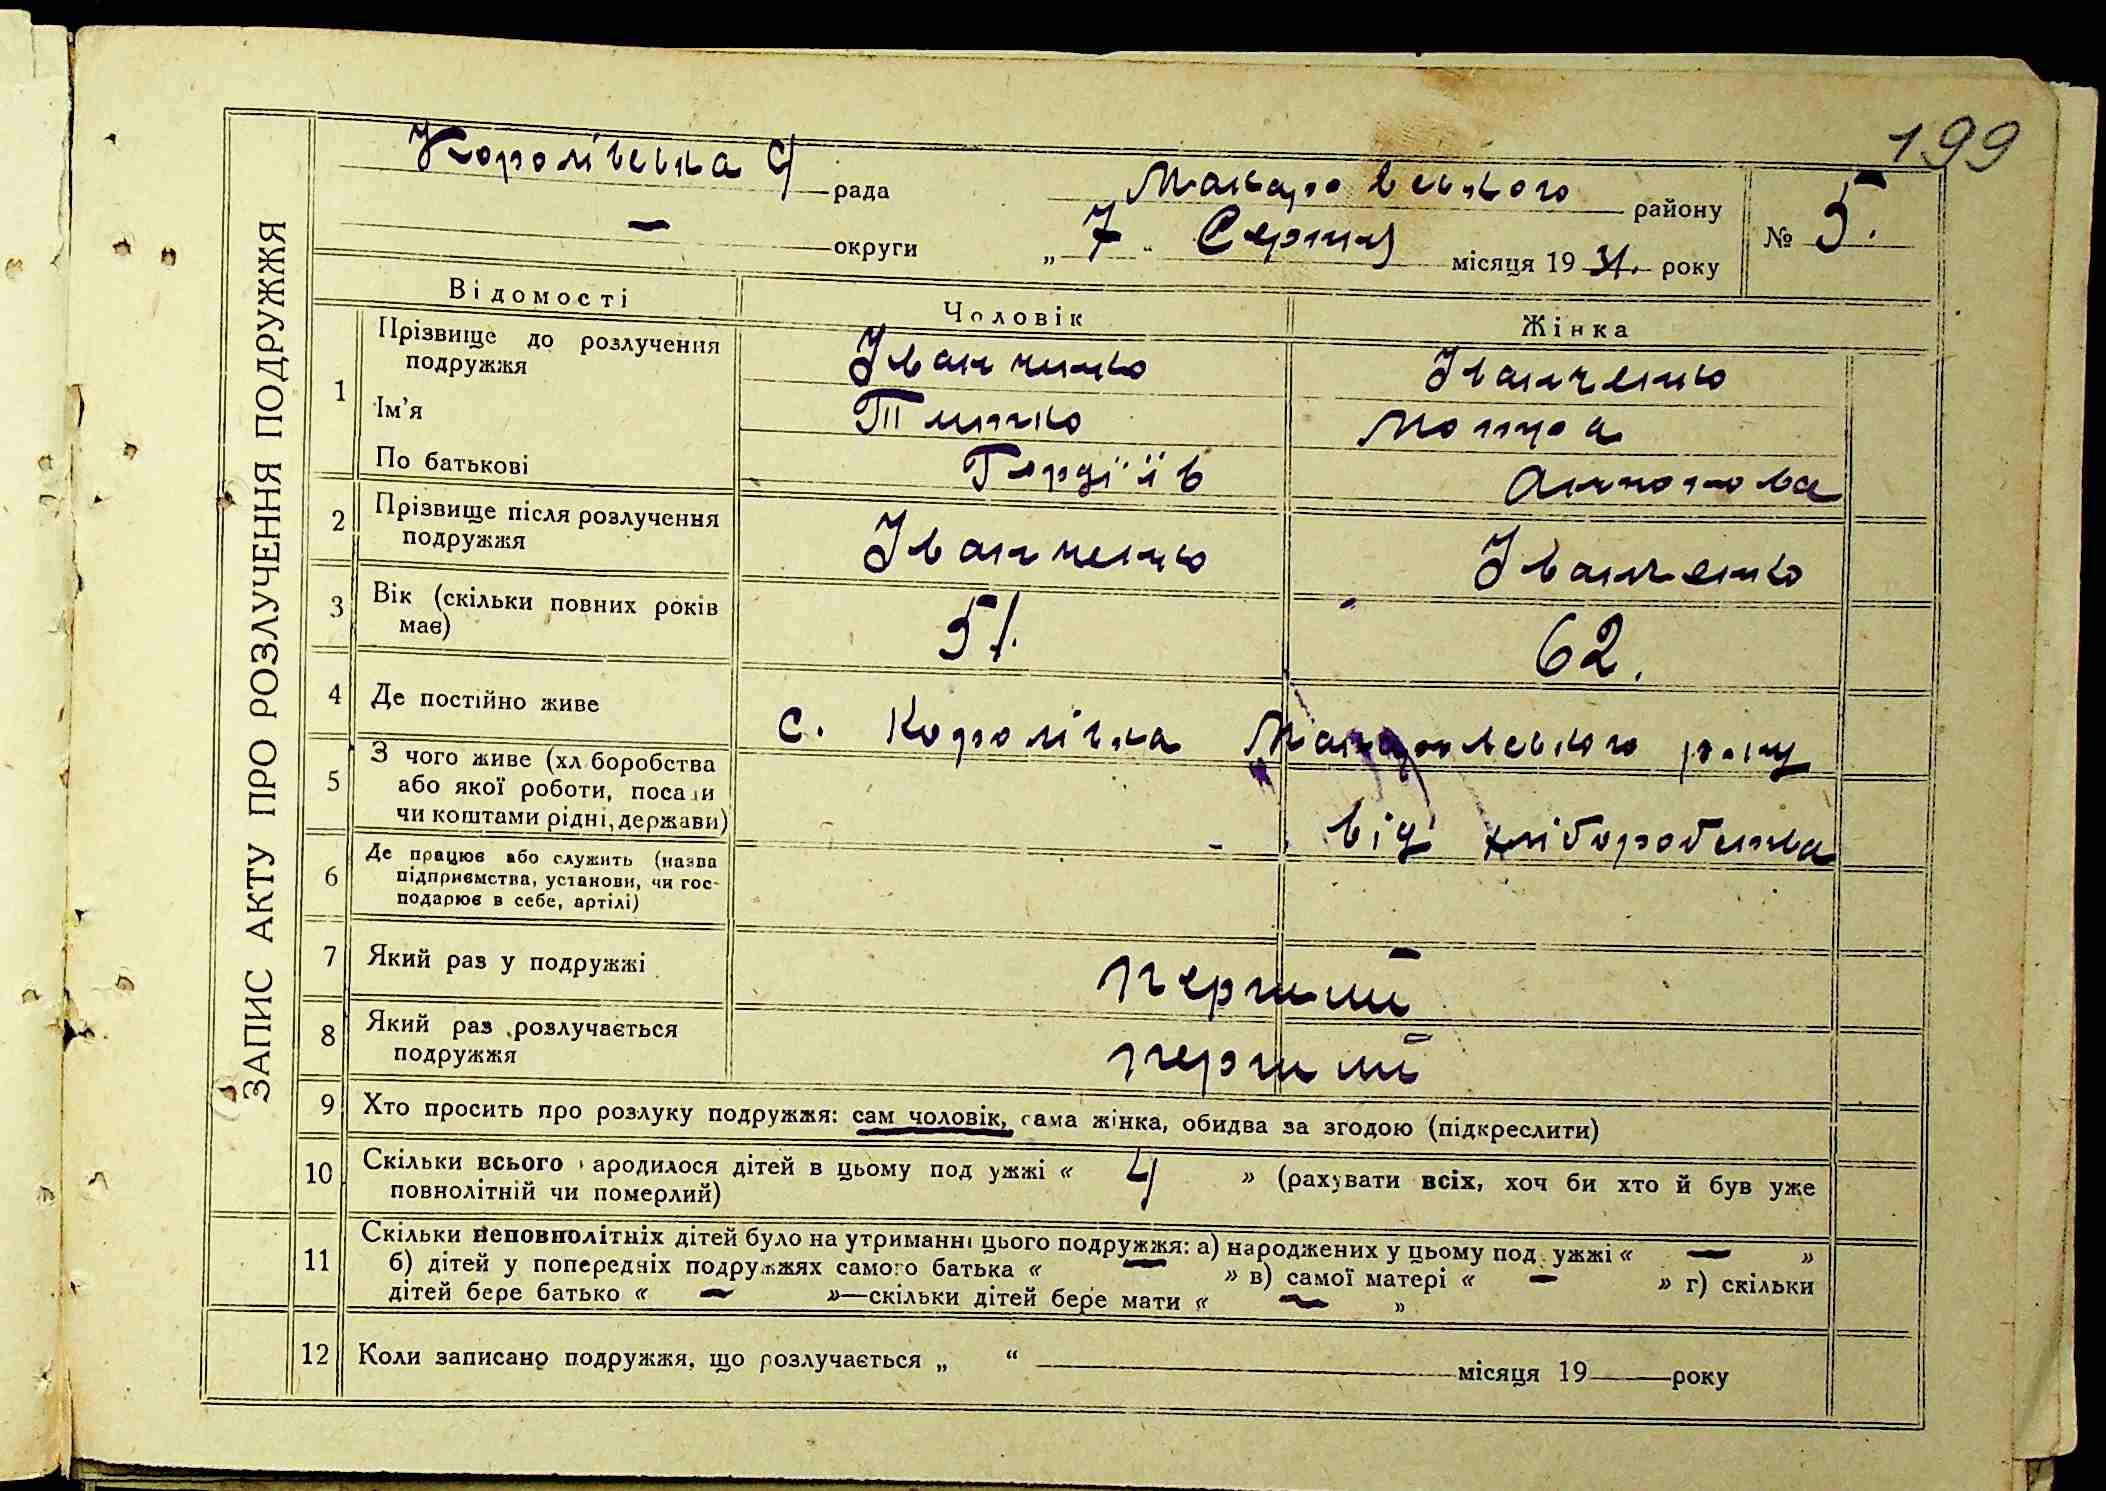 199
ЗАПИС АКТУ ПРО РОЗЛУЧЕННЯ ПОДРУЖЖЯ
Королівська с/рада
Макарівського району
№ 5.
— округи
„ 7 “ Серпня місяця 1931. року
Відомості Чоловік Жінка
1 Прізвище до розлучення подружжя Іванченко Іванченко
Ім'я Монра
По батькові Гордіїв Антонова
2 Прізвище після розлучення подружжя Іванченко Іванченко
3 Вік (скільки повних років має) 51. 62.
4 Де постійно живе с. Королівка Макарівського р-ну
5 З чого живе (хл боробства або якої роботи, посади чи коштами рідні, держави) - від хліборобства
6 Де працює або служить (назва підприємства, установи, чи господарює в себе, артілі)
7 Який раз у подружжі перший
8 Який раз розлучається подружжя перший
9 Хто просить про розлуку подружжя: сам чоловік, сама жінка, обидва за згодою (підкреслити)
10 Скільки всього народилося дітей в цьому подружжі « 4 » (рахувати всіх, хоч би хто й був уже
повнолітній чи померлий)
11 Скільки неповнолітніх дітей було на утриманні цього подружжя: а) народжених у цьому подружжі « — »
б) дітей у попередніх подружжях самого батька « — » в) самої матері « — » г) скільки
дітей бере батько « — »—скільки дітей бере мати « — »
12 Коли записано подружжя, що розлучається „ “ місяця 19 року